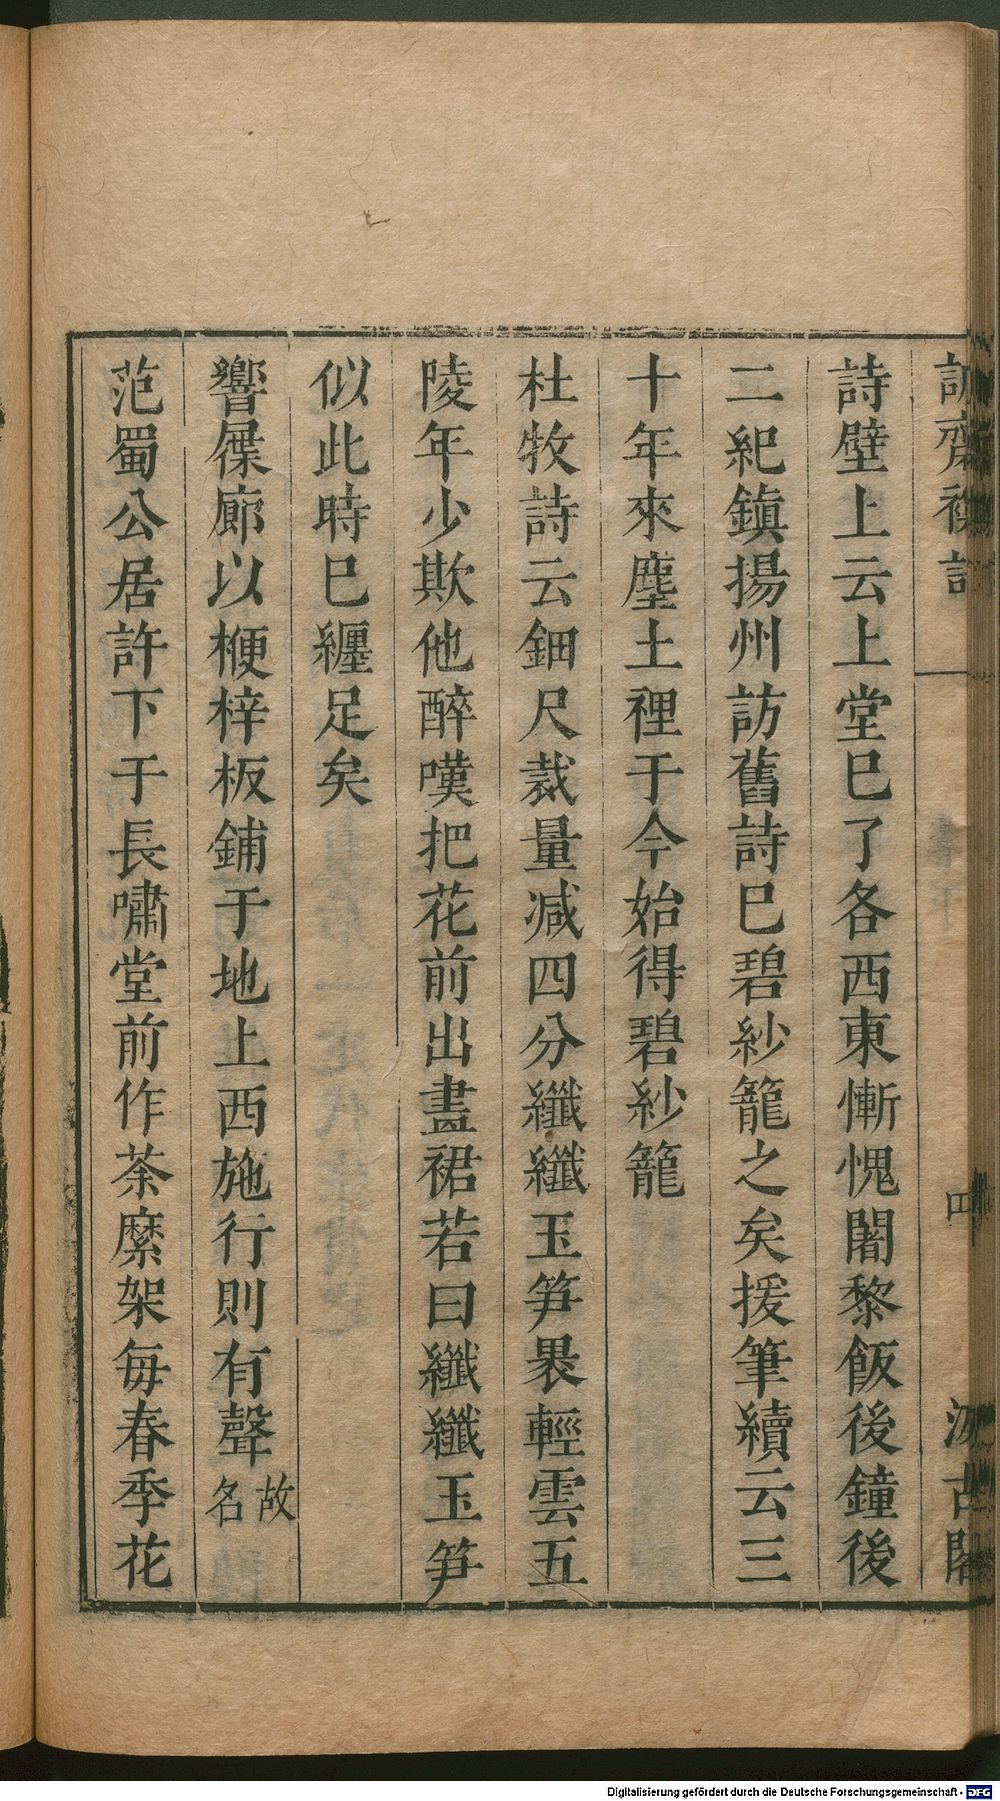 詩壁上云上堂巳了各西東慚愧闍黎飯後鐘後
二紀鎮揚州訪舊詩巳碧紗籠之矣援筆續云三
十年來塵土裡于今始得碧紗籠
杜牧詩云鈿尺裁量減四分纖纖玉笋裹輕雲五
陵年少欺他醉嘆把花前出畫裙若曰纖纖玉笋
似此時巳纏足矣
響屧廊以楩梓板鋪于地上西施行則有聲故名
范蜀公居許下于長嘯堂前作荼䕷架每春季花
齋
四
汲古閣
Digitalisierung gefördert durch die Deutsche Forschungsgemeinschaft - DFG